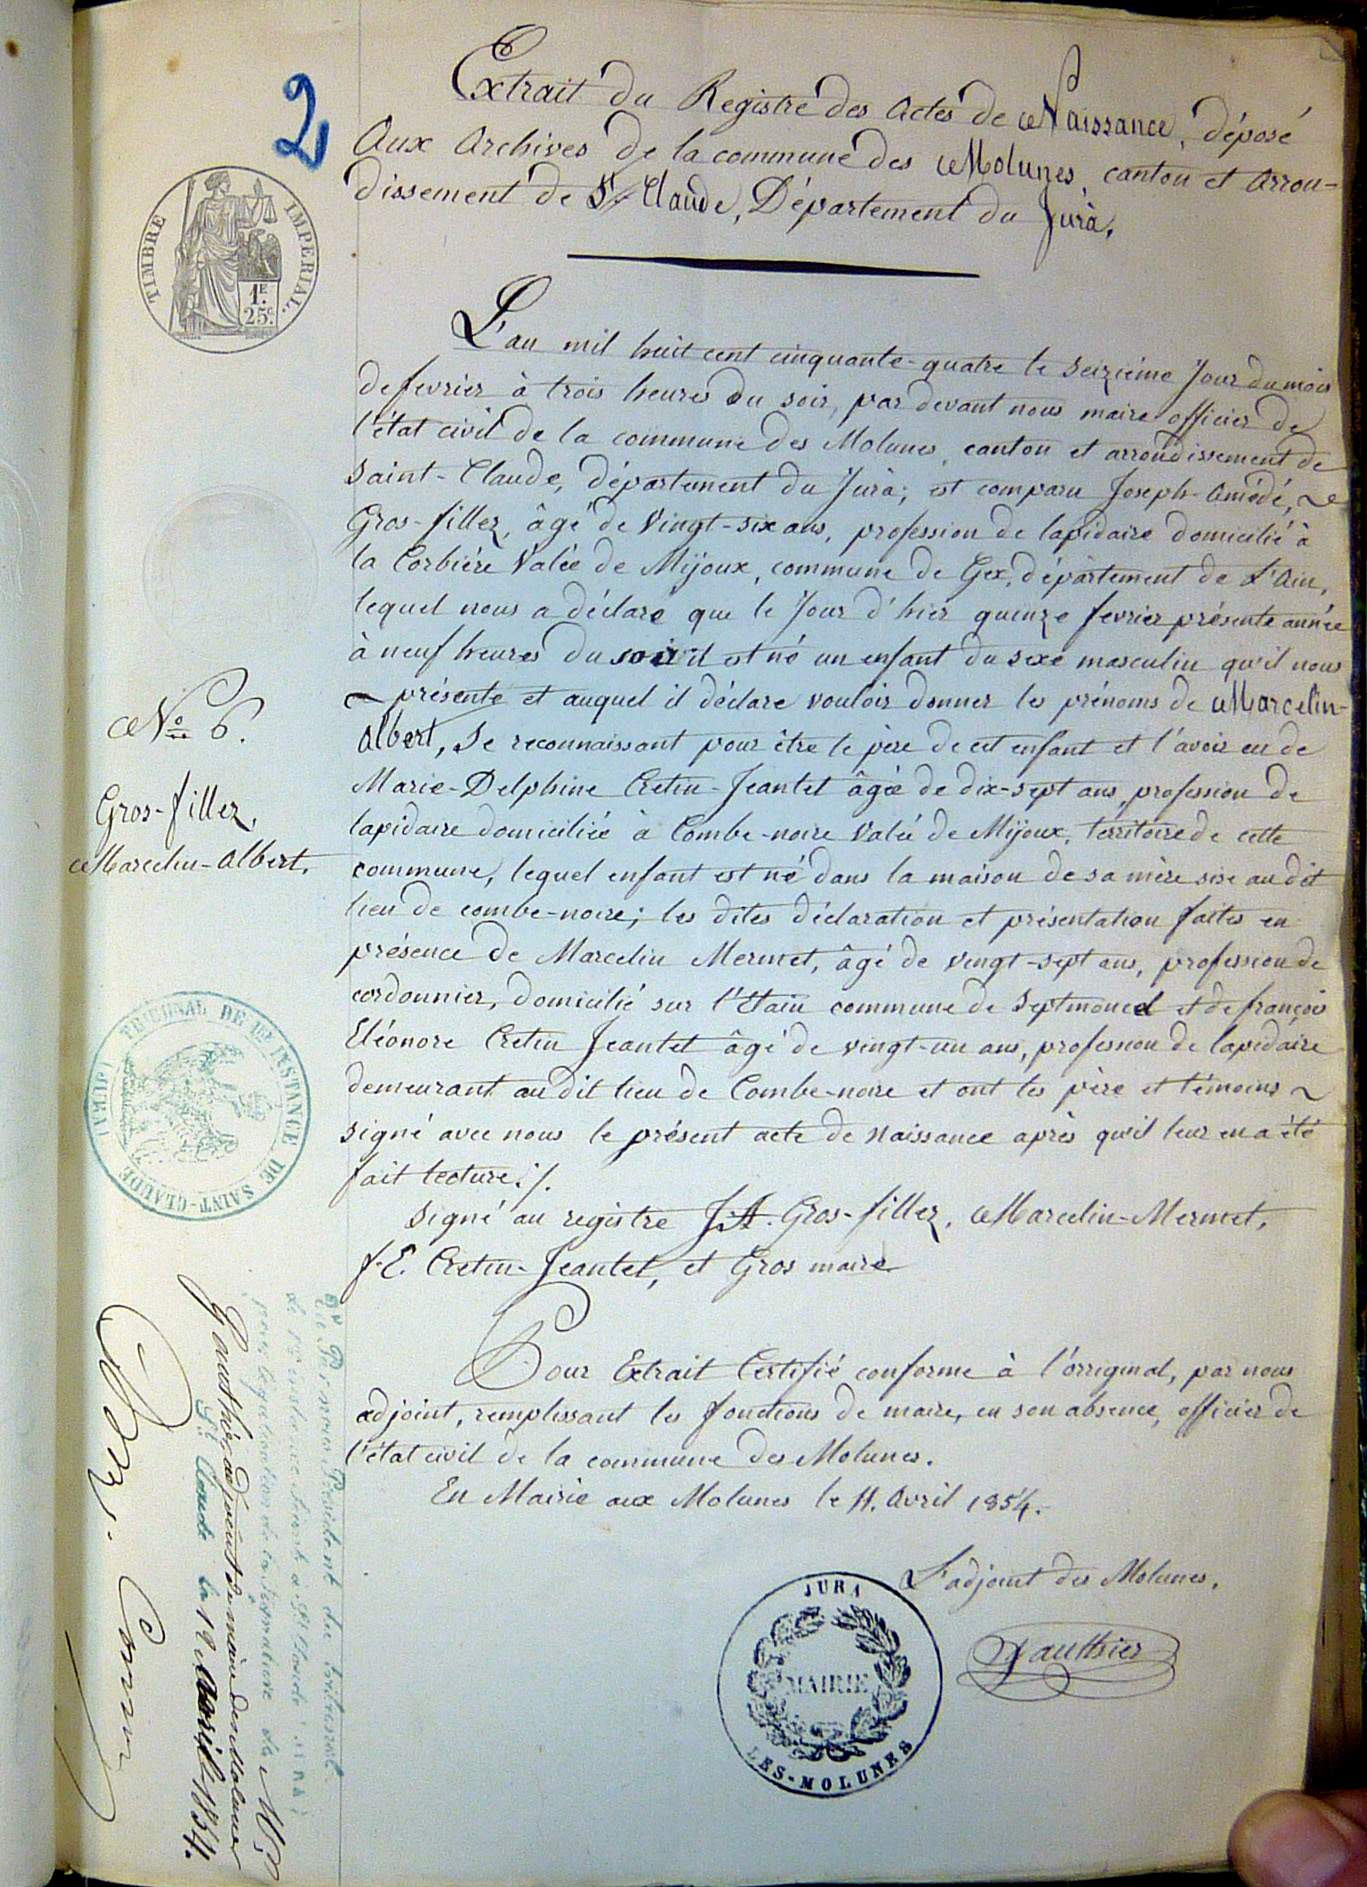 2
Extrait du Registre des Actes de Naissance, déposé
Aux Archives de la commune des Molunes, canton et Arron-
dissement de St Claude, Département du Jura.
TIMBRE IMPERIAL.
1F.
25c.
L'an mil huit cent cinquante-quatre le seizième Jour du mois
de fevrier à trois heures du soir, par devant nous maire officier de
l'état civil de la commune des Molunes, canton et arrondissement de
Saint-Claude, département du Jura; est comparu Joseph-Amédé,
Gros-fillez, âgé de Vingt-six ans, profession de lapidaire domicilié à
la Corbière Valée de Mijoux, commune de Gex, département de L'Ain,
lequel nous a déclaré que le Jour d'hier quinze fevrier présente année
à neuf heures du soir il est né un enfant du sexe masculin qu'il nous
présente et auquel il déclare vouloir donner les prénoms de Marcelin-
Albert, Se reconnaissant pour être le père de cet enfant et l'avoir eu de
Marie-Delphine Cretin-Jeantet âgée de dix-sept ans, profession de
lapidaire domiciliée à Combe-noire Valée de Mijoux, territoire de cette
commune, lequel enfant est né dans la maison de sa mère sise au dit
lieu de combe-noire; les dites déclaration et présentation faites en
présence de Marcelin Mermet, âgé de vingt-sept ans, profession de
cordonnier, domicilié sur l'Etain commune de Septmoncel et de françois
Eléonore Cretin Jeantet âgé de vingt-un ans, profession de lapidaire
demeurant au dit lieu de Combe-noire et ont les père et témoins
signé avec nous le présent acte de Naissance après qu'il leur en a été
fait lecture./.
Signé au registre J.A. Gros-fillez, Marcelin-Mermet,
f.E. Cretin-Jeantet, et Gros maire
No 6.
Gros-fillez,
Marcelin-Albert.
TRIBUNAL DE 1ère INSTANCE DE SAINT-CLAUDE (JURA)
Pour Extrait Certifié conforme à l'orriginal, par nous
adjoint, remplissant les fonctions de maire, en son absence, officier de
l'état civil de la commune des Molunes.
En Mairie aux Molunes le 11. Avril 1854.
L'adjoint des Molunes,
Gauthier
JURA
MAIRIE
LES-MOLUNES
Président du tribunal
de 1re instance séant à St Claude
pour légalisation de la signature de Mr
Gauthier, adjoint du maire des Molunes
St Claude le 12 Avril 1854.